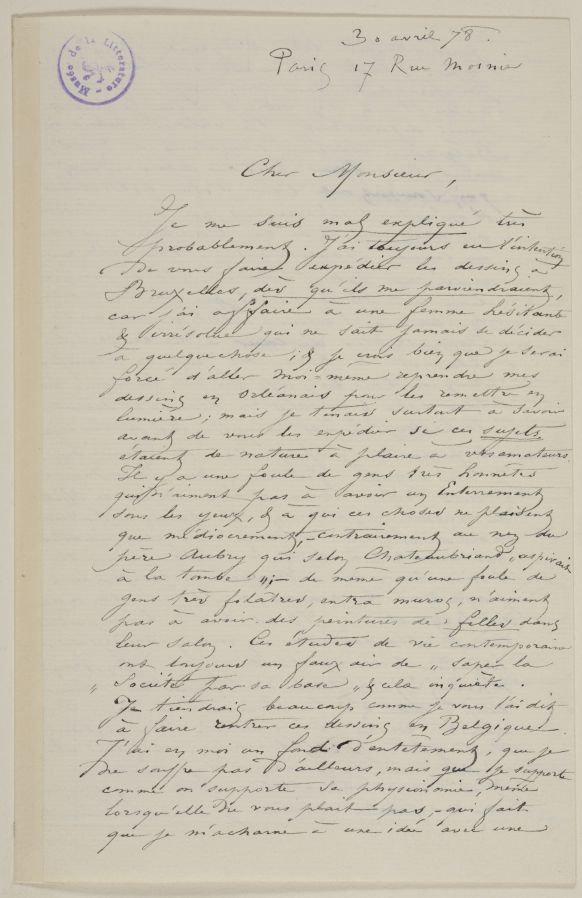 Musée de la Littérature
30 avril 78.
Paris 17 Rue Mosnier
Cher Monsieur,
Je me suis mal expliqué très
probablement. J'ai toujours eu l'intention
de vous faire expédier les dessins à
Bruxelles, dès qu'ils me parviendraient,
car j'ai affaire à une femme hésitante
& irrésolue qui ne sait jamais se décider
à quelquechose ; & je crois bien que je serai
forcé d'aller moi-même reprendre mes
dessins en Orléanais pour les remettre en
lumière ; mais je tenais surtout à savoir
avant de vous les expédier si ces sujets
étaient de nature à plaire à vos amateurs
Il y a une foule de gens très honnêtes
qui n'aiment pas à avoir un Enterrement
sous les yeux, & à qui ces choses ne plaisent
que médiocrement, - contrairement au nez du
père Aubry qui selon Chateaubriand „aspirait
à la tombe „ ; - de même qu'une foule de
gens très folatres, extra muros, n'aiment
pas à avoir des peintures de filles dans
leur salon. Ces études de vie contemporaine
ont toujours un faux air de „ saper la
„ Société par sa base „ & cela inquiète.
Je tiendrais beaucoup comme je vous l'ai dit
à faire rentrer ces dessins en Belgique.
J'ai en moi un fond d'entêtement, que je
ne souffre pas d'ailleurs, mais que je supporte
comme on supporte sa physionomie, même
lorsqu'elle ne vous plait pas, - qui fait
que je m'acharne à une idée avec une